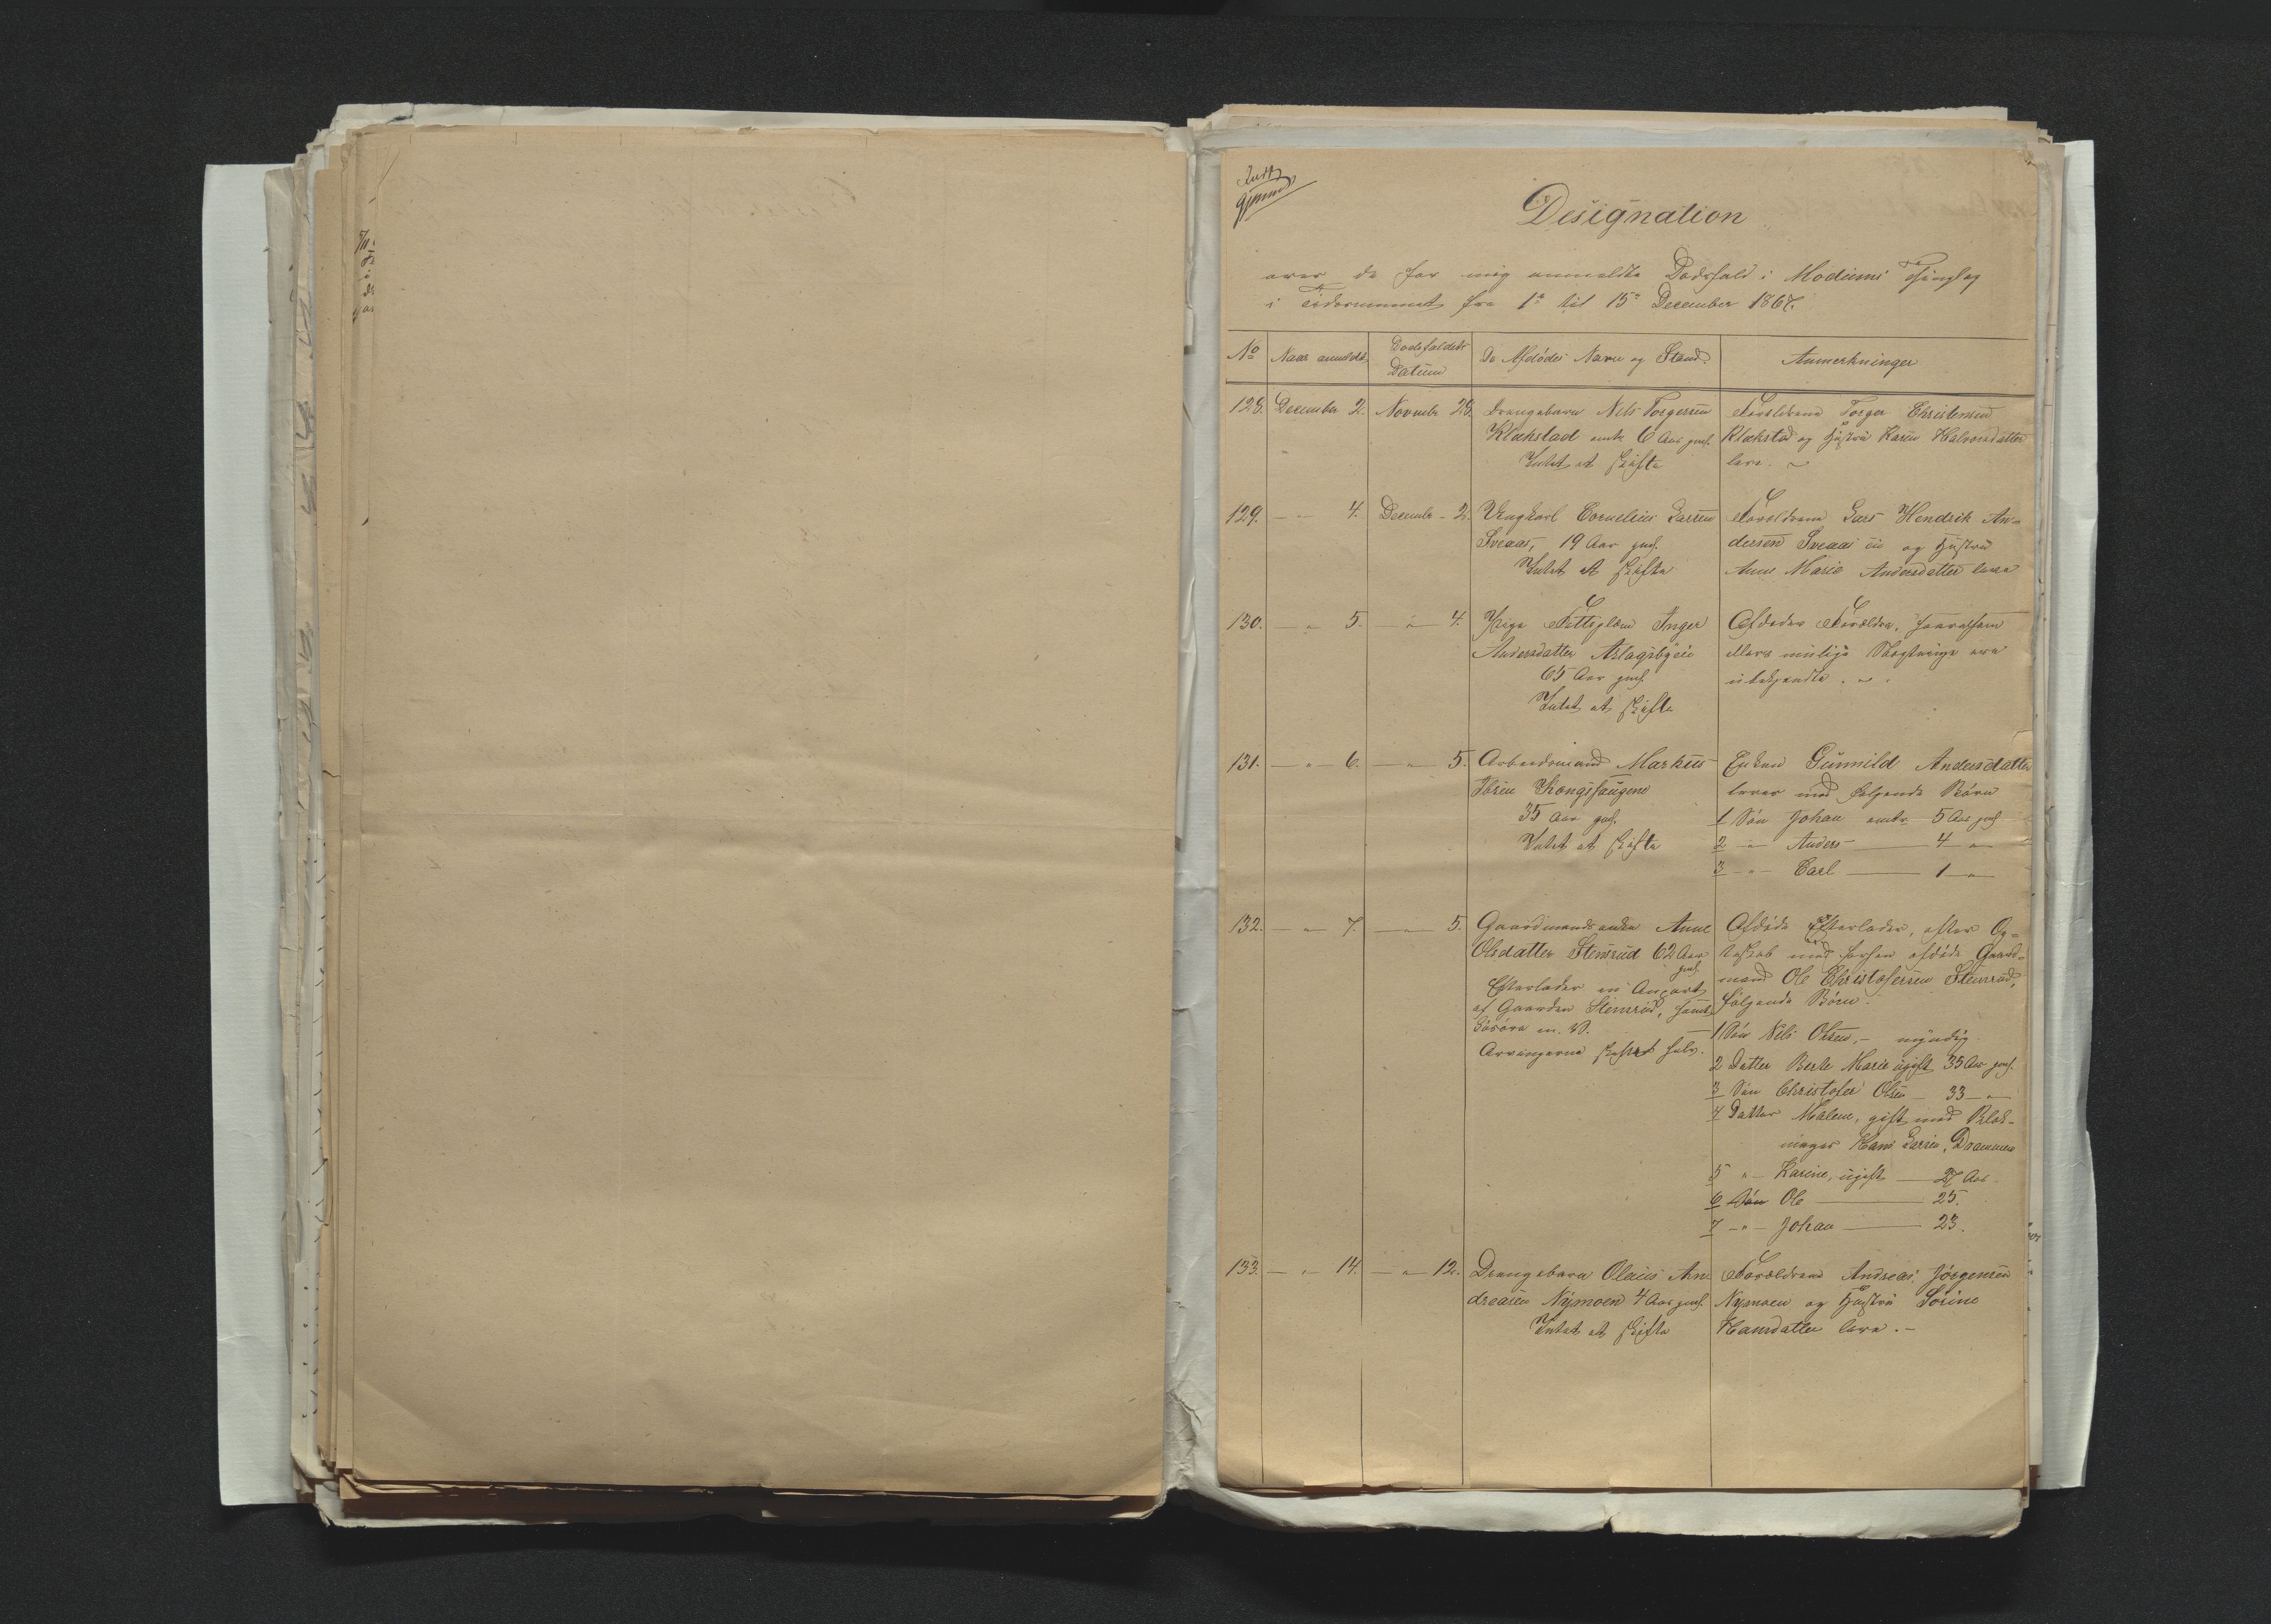 Designation
over de for mig anmeldte Dødsfald i Modums Thinglag
i Tidsrummet fra 1e til 15e December 1867.
No
Naar anmeldt
Dødsfaldets Datum
De Afdødes Navn og Stand
Anmerkninger
128. December 2. Novembr 28.
Drengebarn Nils Torgersen
Klækstad omtr 6 Aar gml.
Intet at skifte
Forældrene Torger Christensen
Klækstad og Hustru Karen Halvorsdatter
leve.
129. — 4. Decembr - 2.
Ungkarl Cornelius Larsen
Sveaas, 19 Aar gml.
Intet at skifte
Forældrene Lars Hendrik An-
dersen Sveaas eie og Hustru
Anne Marie Andersdatter leve
130. — " 5. — " 4.
Pige Fattiglem Inger
Andersdatter Aslagsbyeie
65 Aar gml.
Intet at skifte
Afdødes Forældre, saavelsom
ellers mulige Slægtninge ere
ubekjendte.
131. — " 6. — " 5.
Arbeidsmand Markus
Ibsen Kongssaugene
35 Aar gml.
Intet at skifte
Enken Gunnild Andersdatter
lever med følgende Børn
1 Søn Johan omtr 5 Aar gml
2 — " Anders — 4 "
3 — " — Carl — 1 "
132. — " 7. — " 5.
Gaardmandsenke Anne
Olsdatter Stensrud 62 Aar
gml.
Efterlader en Anpart
af Gaarden Stensrud, samt
Løsøre m. V.
Arvingerne skifter selv.
Afdøde Efterlader, efter Eg-
teskab med forhen afdøde Gaard-
mand Ole Christofersen Stensrud,
følgende Børn:
1 Søn Nils Olsen, - myndig
2 Datter Berte Marie ugift 35 Aar gml.
3 Søn Christofer Olsen — 33 — "
4 Datter Malene, gift med Blok-
mager Hans Larsen, Drammen
5 " — Karine, ugift — 27 Aar.
6 Søn Ole — 25.
7 — " — Johan — 23.
133. — " 14. — " — 12.
Drengebarn Olaus An-
dreasen Nymoen 4 Aar gml.
Intet at skifte
Forældrene Andreas Jørgensen
Nymoen og Hustru Sørine
Hansdatter leve. -